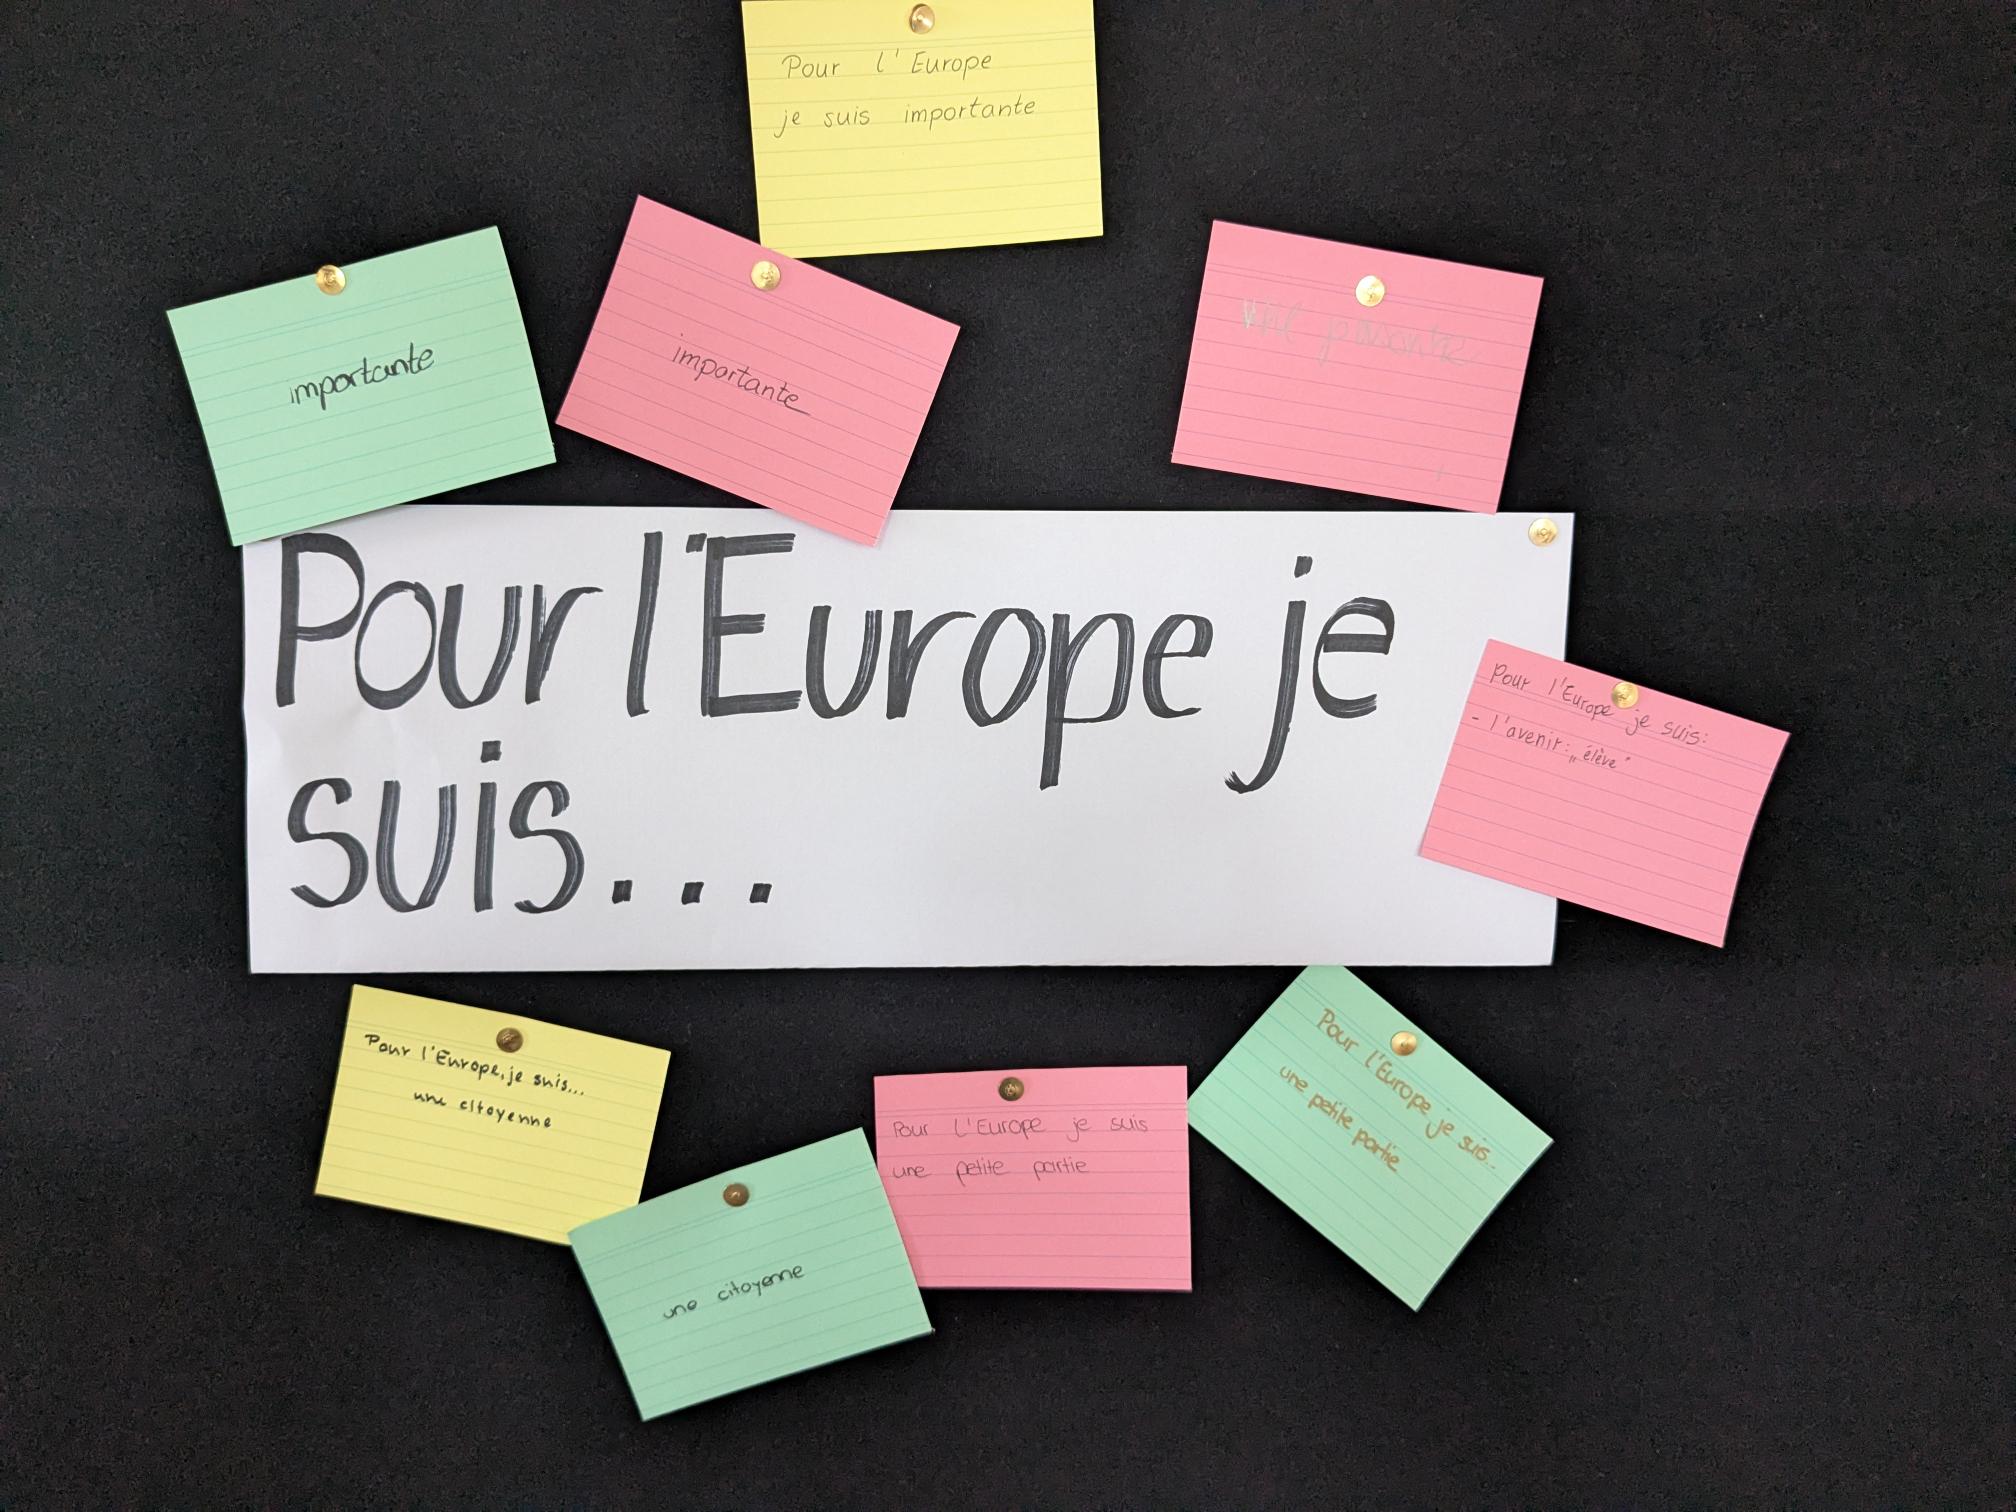 Pour l'Europe
je suis importante
importante
importante
une
Pour l'Europe je
suis...
Pour l'Europe je suis:
- l'avenir: „élève“
Pour l'Europe, je suis...
une citoyenne
une citoyenne
Pour l'Europe je suis
une petite partie
Pour l'Europe je suis...
une petite partie